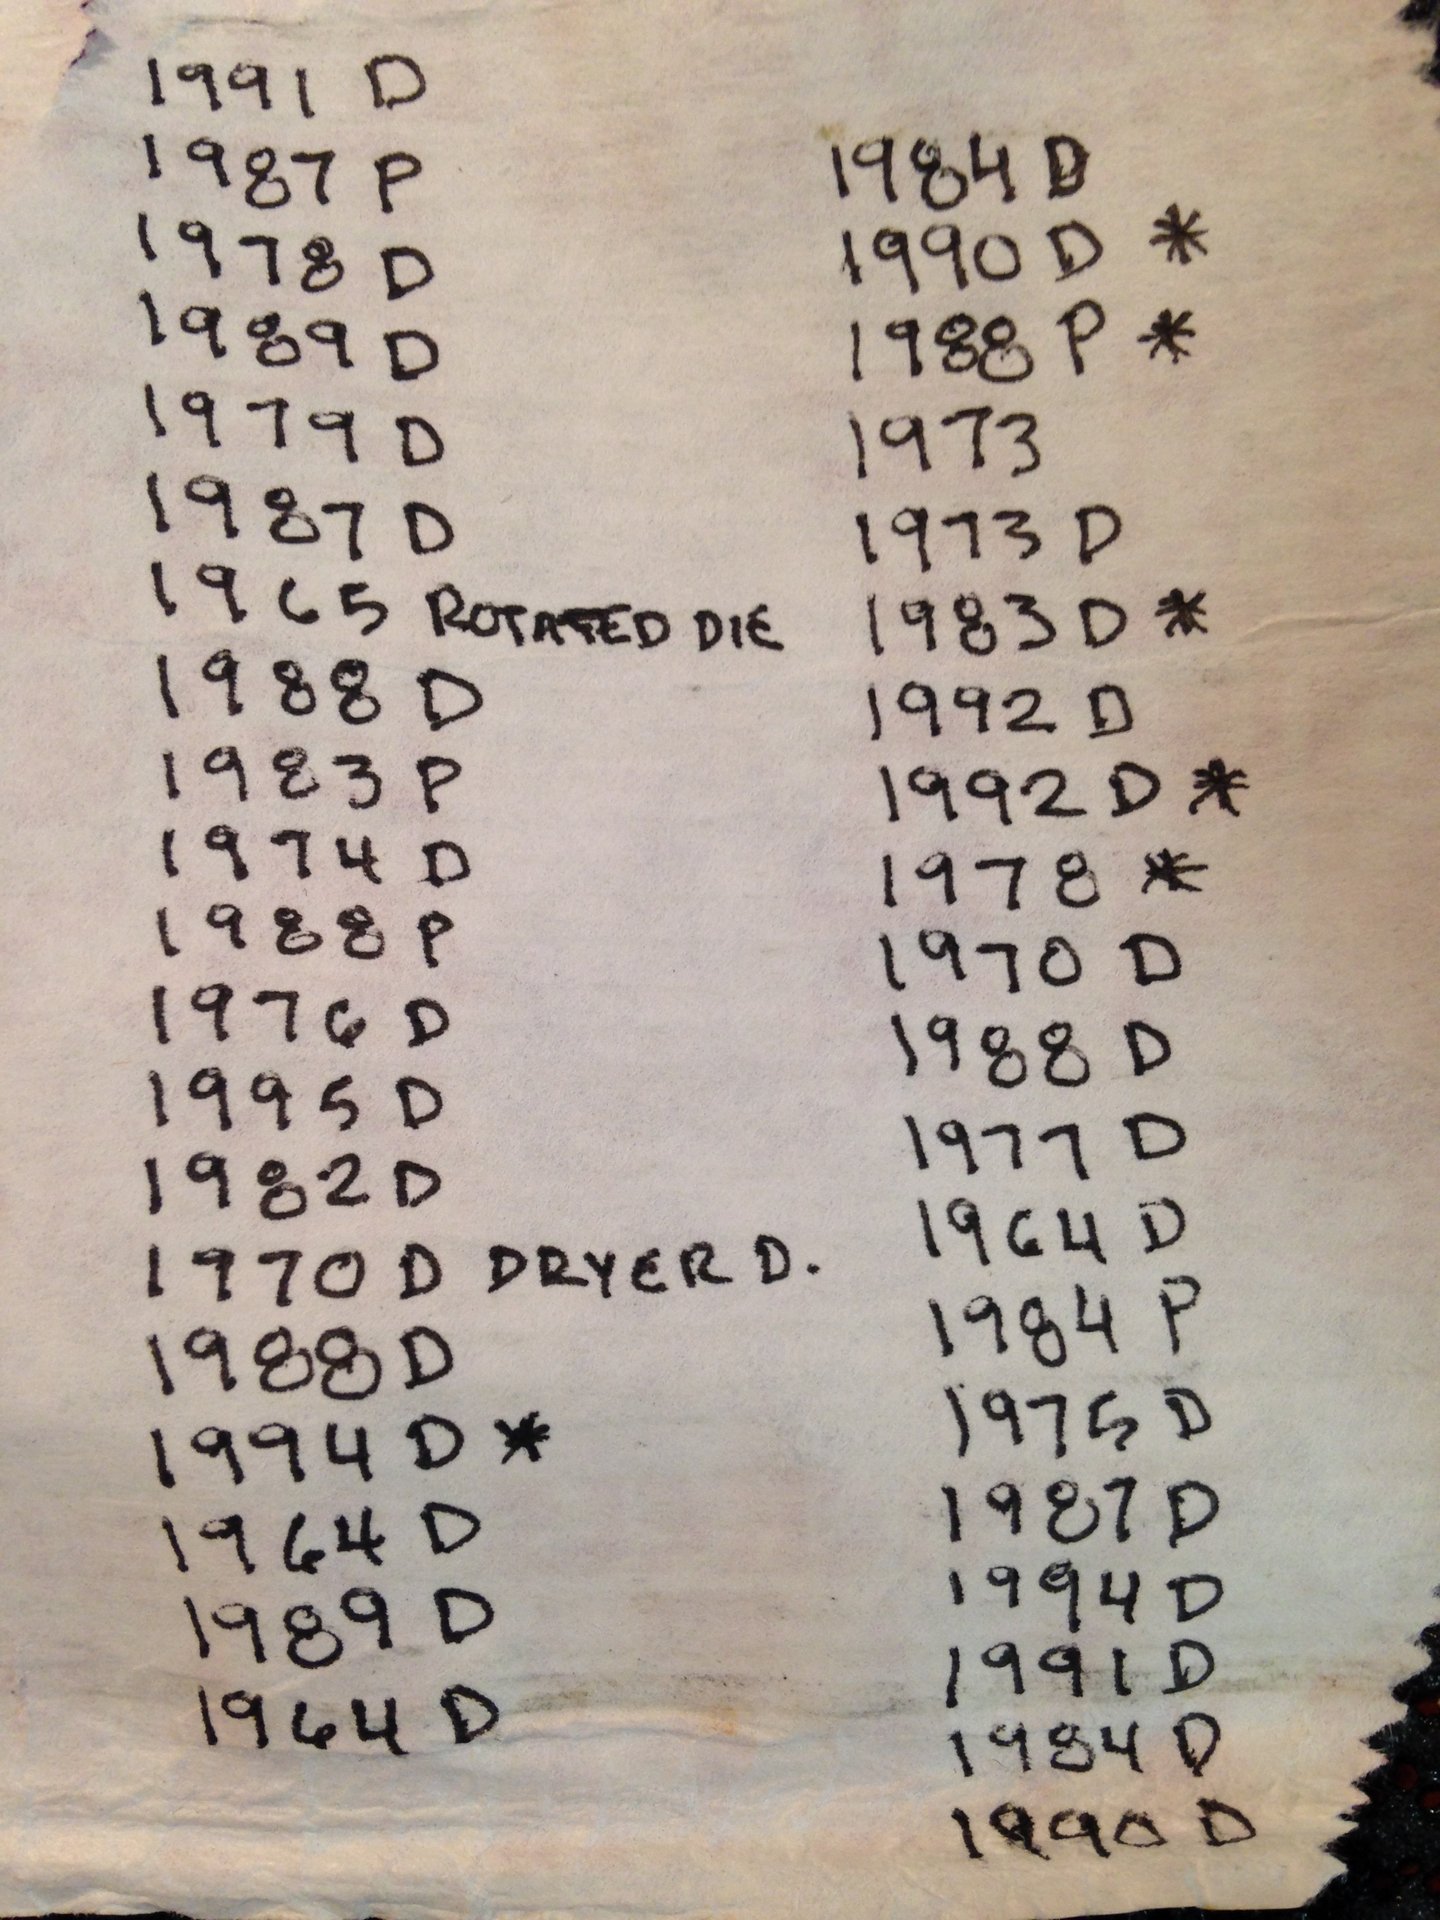 1991 D
1987 P
1978 D
1989 D
1979 D
1987 D
1965 ROTATED DIE
1988 D
1983 P
1974 D
1988 P
1976 D
1995 D
1982 D
1970 D DRYER D.
1988 D
1994 D *
1964 D
1989 D
1964 D
1984 D
1990 D *
1988 P *
1973
1973 D
1983 D *
1992 D
1992 D *
1978 *
1970 D
1988 D
1977 D
1964 D
1984 P
1975 D
1987 D
1994 D
1991 D
1984 D
1990 D